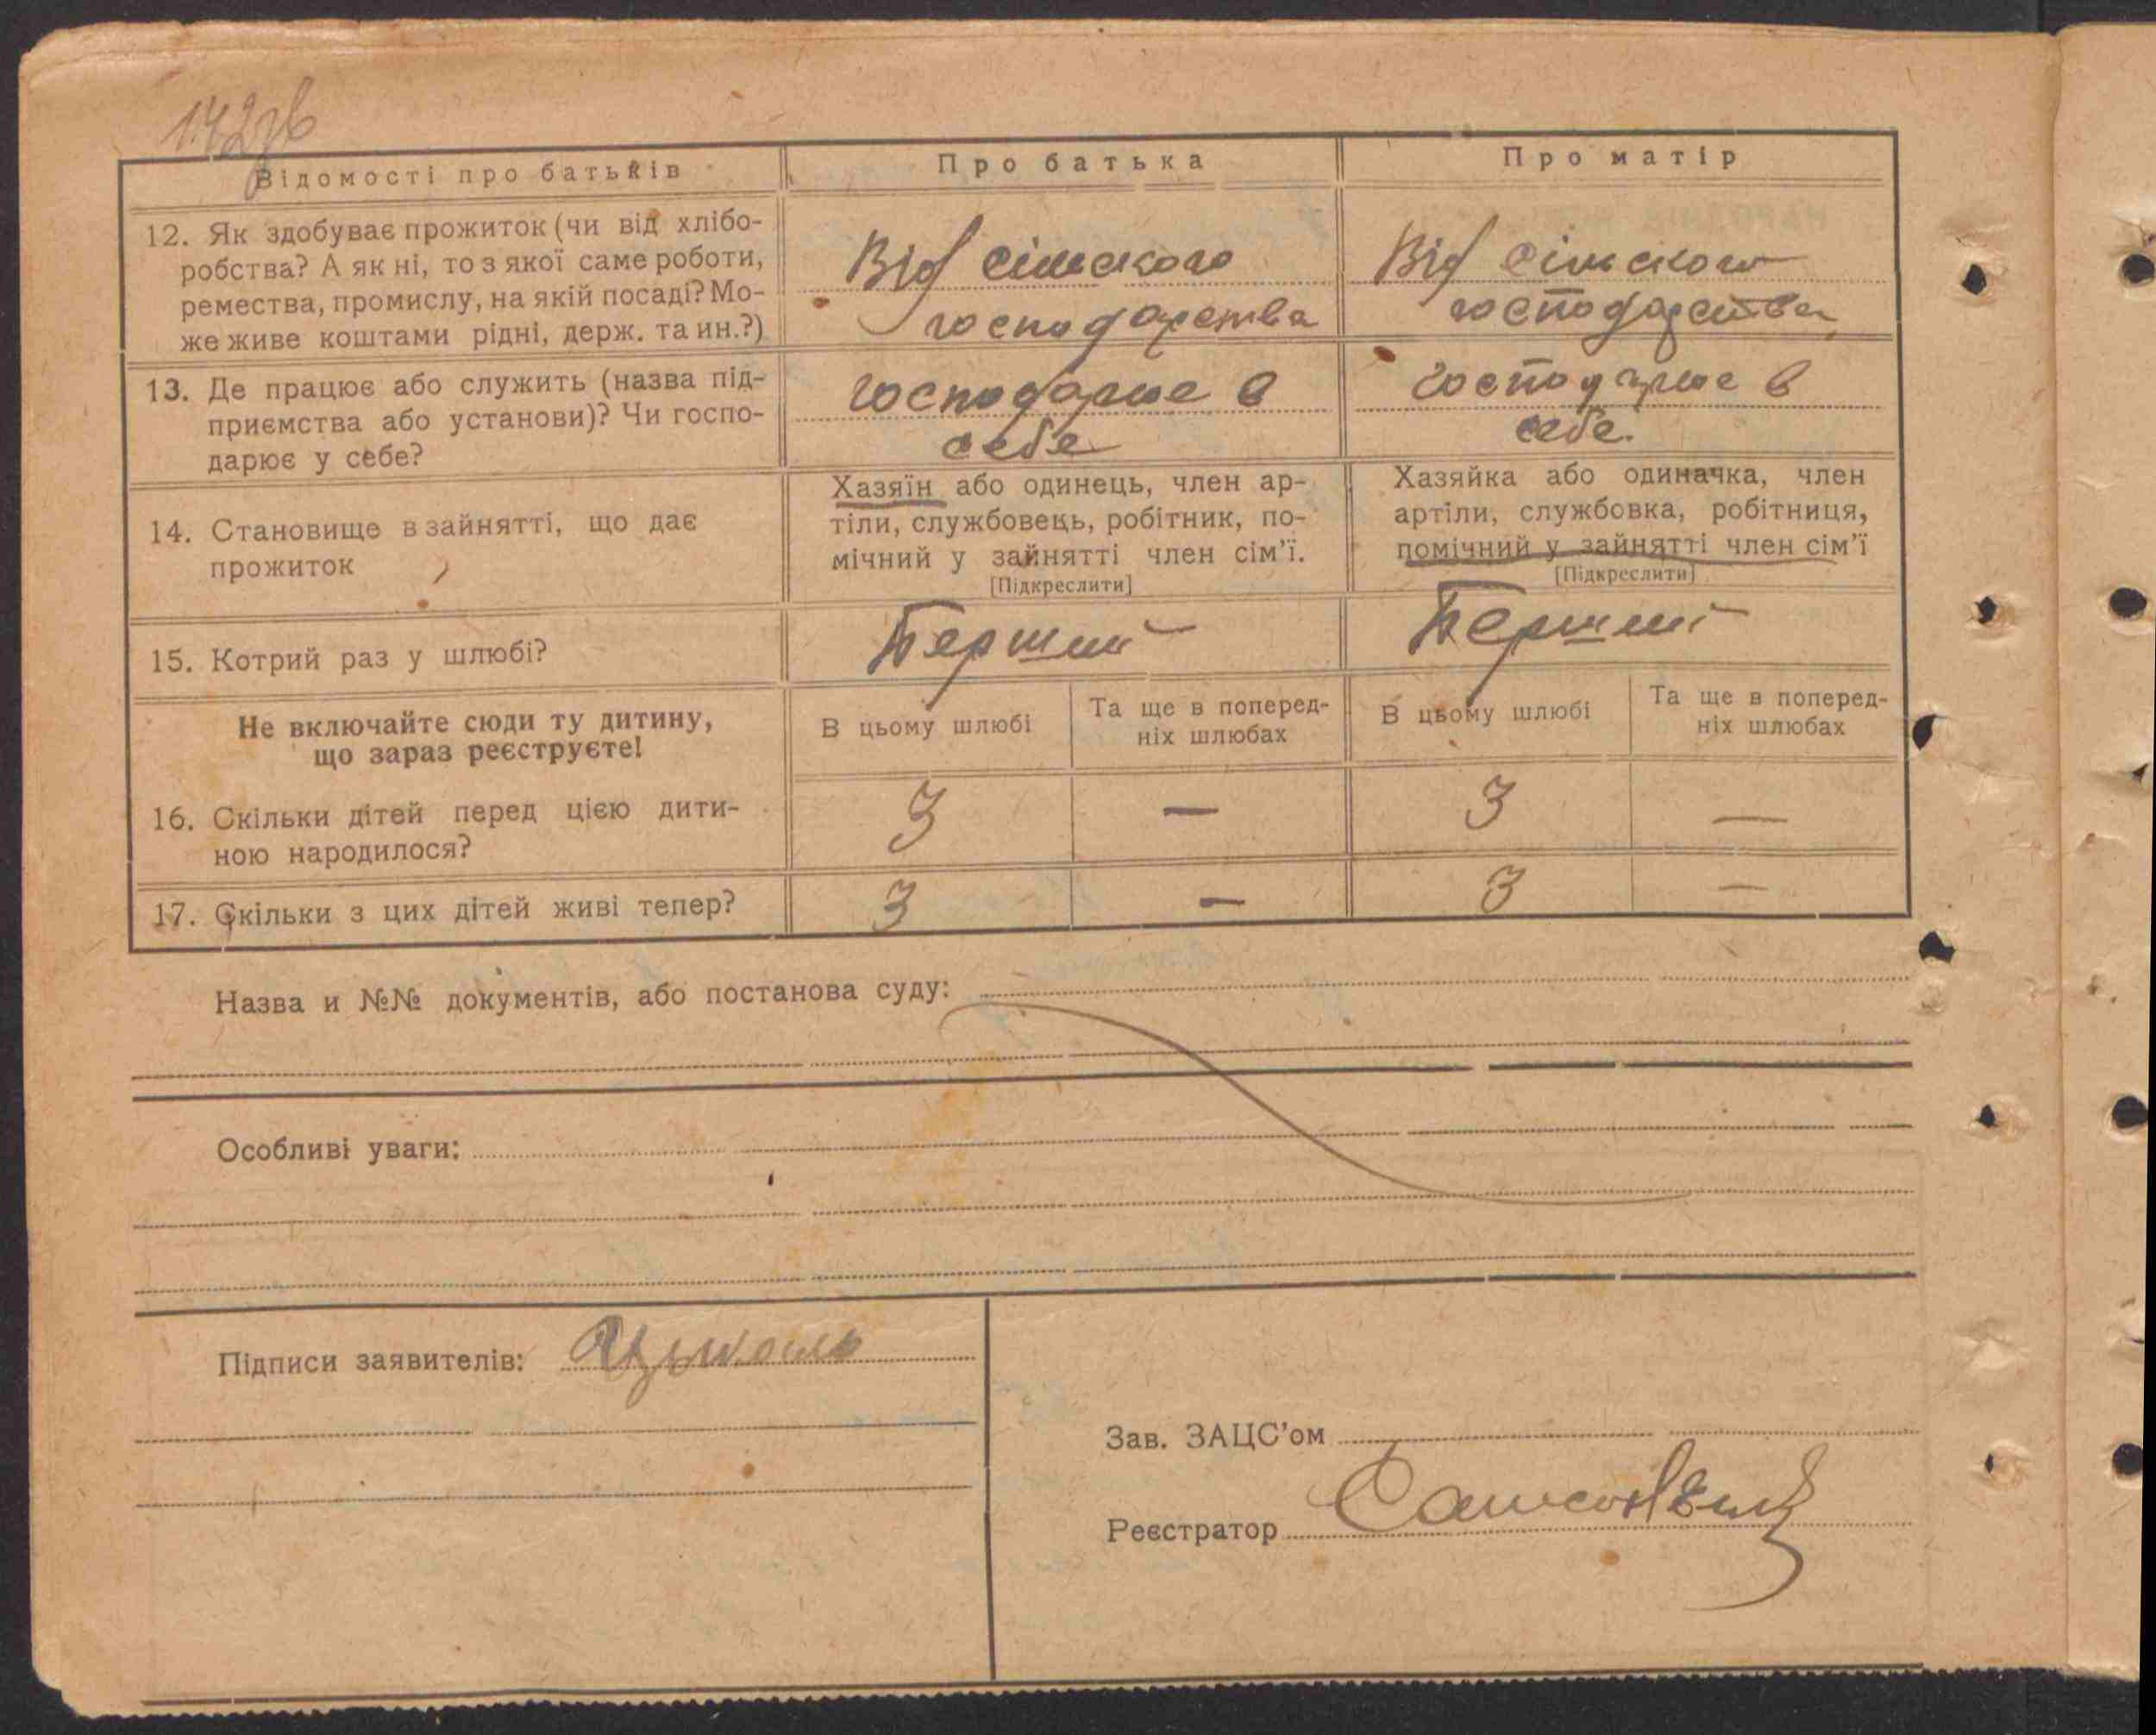 142зв
Відомості про батьків
Про батька
Про матір
12. Як здобуває прожиток (чи від хлібо-
робства? А як ні, то з якої саме роботи,
ремества, промислу, на якій посаді? Мо-
же живе коштами рідні, держ. та ин.?)
Від сільского
господарства
Від сільского
господарства
13. Де працює або служить (назва під-
приємства або установи)? Чи госпо-
дарює у себе?
господарює в
себе
господарює в
себе.
14. Становище в зайнятті, що дає
прожиток
Хазяїн або одинець, член ар-
тіли, службовець, робітник, по-
мічний у зайнятті член сім'ї.
[Підкреслити]
Хазяйка або одиначка, член
артіли, службовка, робітниця,
помічний у зайнятті член сім'ї
[Підкреслити]
15. Котрий раз у шлюбі?
Перший
Перший
Не включайте сюди ту дитину,
що зараз реєструєте!
В цьому шлюбі
Та ще в поперед-
ніх шлюбах
В цьому шлюбі
Та ще в поперед-
ніх шлюбах
16. Скільки дітей перед цією дити-
ною народилося?
3 — 3 —
17. Скільки з цих дітей живі тепер?
3 — 3 —
Назва и №№ документів, або постанова суду:
Особливі уваги:
Підписи заявителів:
Зав. ЗАЦС'ом
Реєстратор